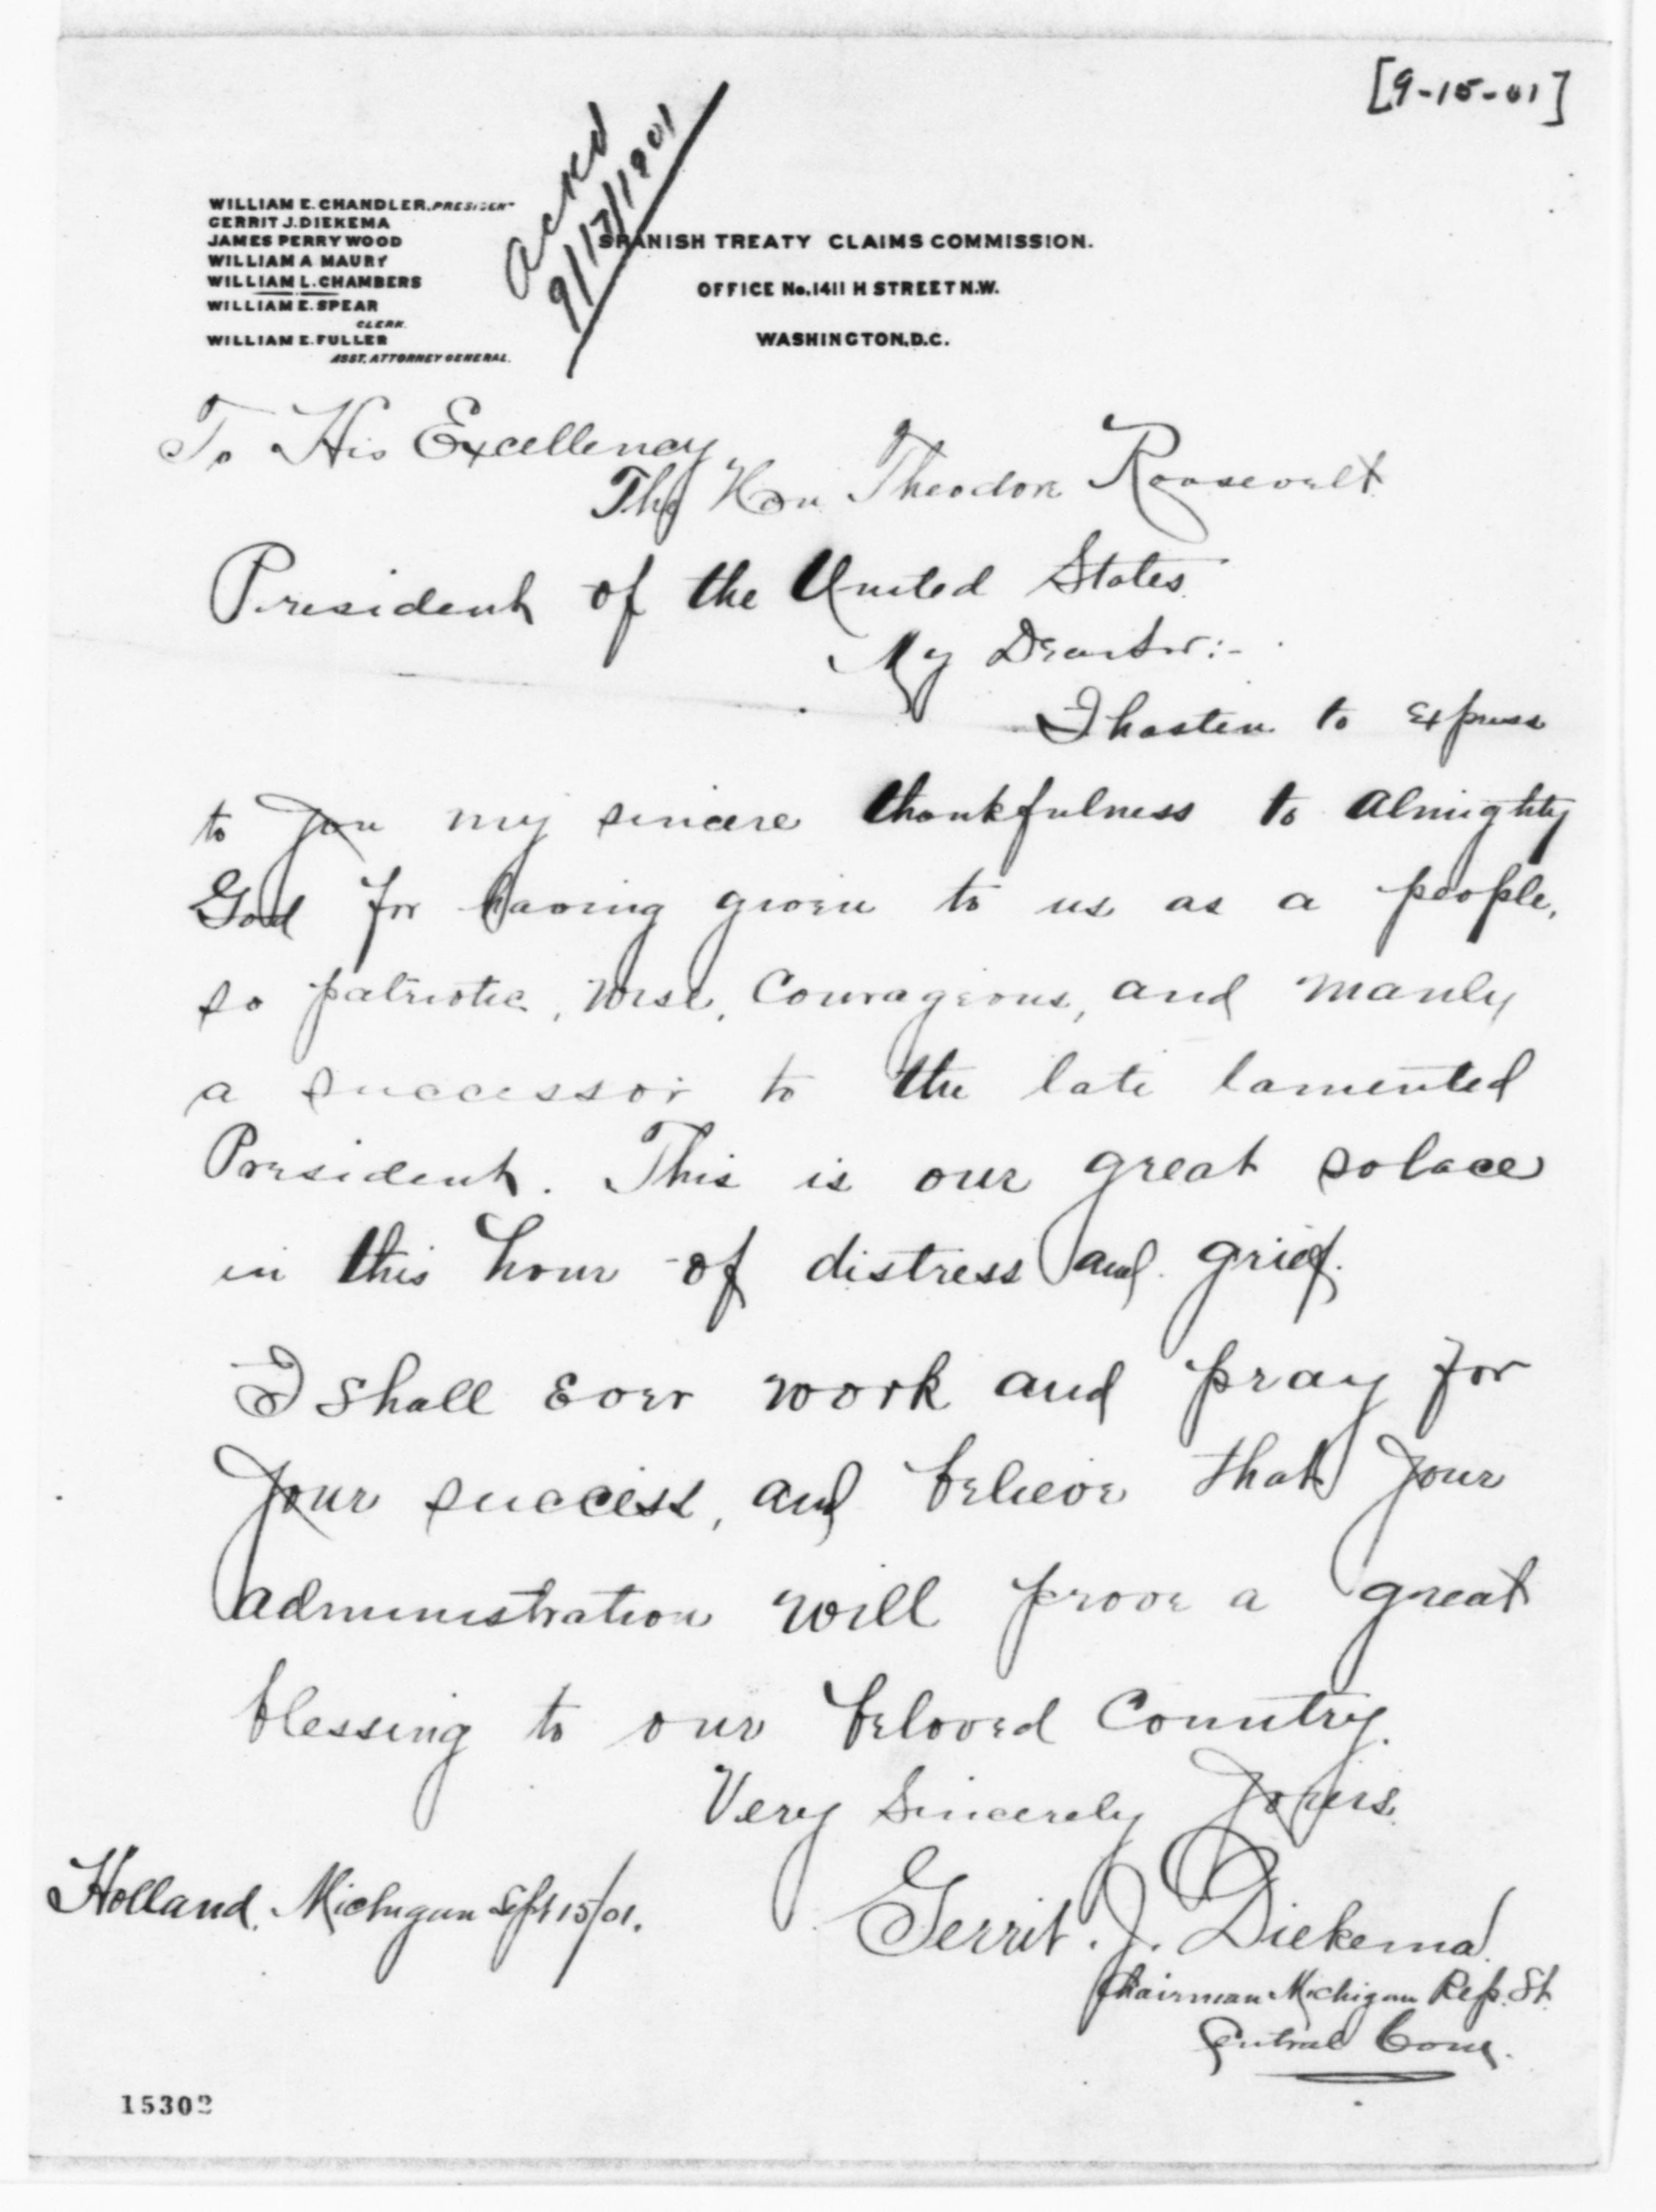 [9-15-01]
Ackd
9/17/1901
WILLIAM E. CHANDLER, PRESIDENT
GERRIT J. DIEKEMA
JAMES PERRY WOOD
WILLIAM A MAURY
WILLIAM L. CHAMBERS
WILLIAM E. SPEAR
CLERK.
WILLIAM E. FULLER
ASST. ATTORNEY GENERAL.
SPANISH TREATY CLAIMS COMMISSION.
OFFICE No. 1411 H STREET N.W.
WASHINGTON, D.C.
To His Excellency
The Hon Theodore Roosevelt
President of the United States
My Dear Sir:-
I hasten to express
to you my sincere thankfulness to Almighty
God for having given to us as a people,
so patriotic, wise, Courageous, and manly
a successor to the late lamented
President. This is our great solace
in this hour of distress and grief.
I shall ever work and pray for
your success, and believe that your
administration will prove a great
blessing to our beloved Country.
Very Sincerely Yours.
Holland, Michigan Sept 15/01.
Gerrit. J. Diekema
Chairman Michigan Rep. St.
Central Com.
15302